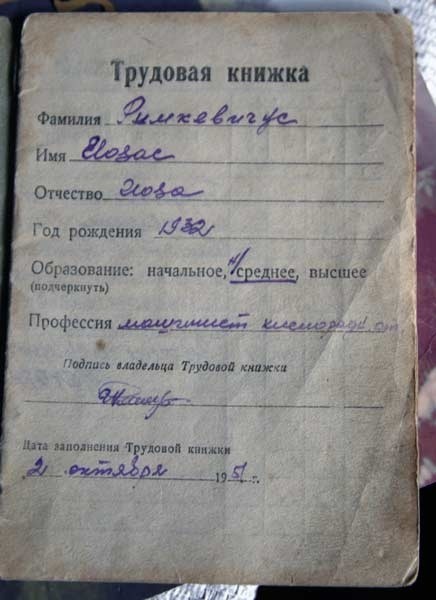 Трудовая книжка
Фамилия Римкевичус
Имя Иозас
Отчество Иоза
Год рождения 1932
Образование: начальное, н/среднее, высшее
(подчеркнуть)
Профессия машинист
Подпись владельца Трудовой книжки
Дата заполнения Трудовой книжки
2 октября 1951 г.